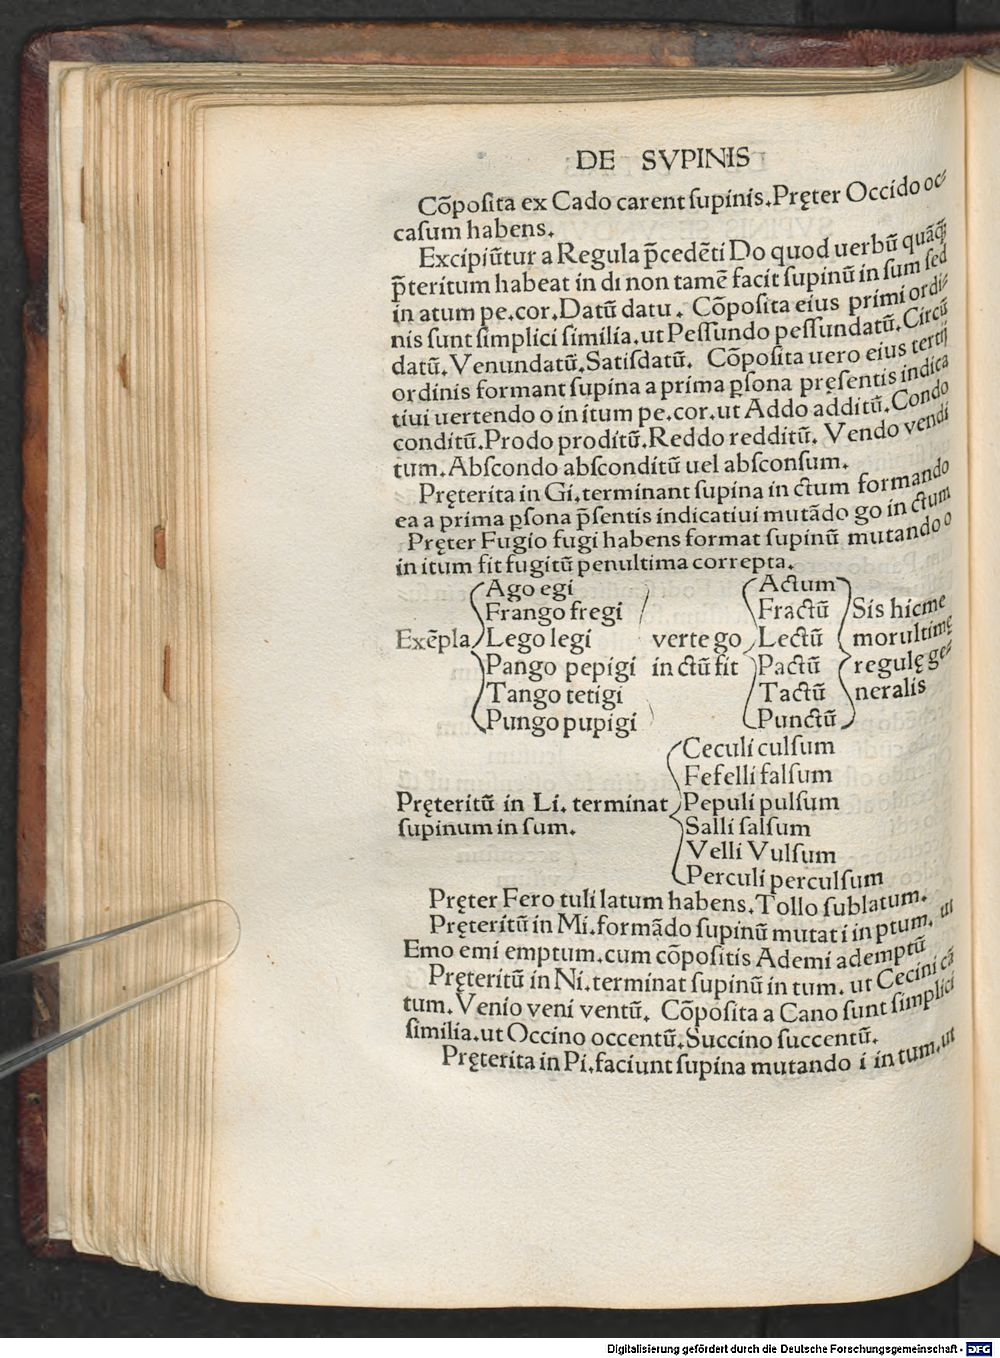 DE SVPINIS
Cõpoſita ex Cado carent ſupinis.Pręter Occido oc-
caſum habens.
Excipiũtur a Regula p̃cedẽti Do quod uerbũ quãq̃
p̃teritum habeat in di non tamẽ facit ſupinũ in ſum ſed
in atum pe.cor.Datũ datu. Cõpoſita eius primi ordi-
nis ſunt ſimplici ſimilia.ut Peſſundo peſſundatũ.Circũ
datũ.Venundatũ.Satiſdatũ. Cõpoſita uero eius tertij
ordinis formant ſupina a prima ꝑſona pręſentis indica
tiui uertendo o in itum pe.cor.ut Addo additũ.Condo
conditũ.Prodo proditũ.Reddo redditũ. Vendo vendi
tum.Abſcondo abſconditũ uel abſconſum.
Pręterita in Gi.terminant ſupina in ctum formando
ea a prima ꝑſona p̃ſentis indicatiui mutãdo go in ctum
Pręter Fugio fugi habens format ſupinũ mutando o
in itum fit fugitũ penultima correpta.
Ago egi Actum
Frango fregi Fractũ Sis hicme
Exẽpla Lego legi verte go Lectũ morultimę
Pango pepigi in ctũ fit Pactũ regulę ge-
Tango tetigi Tactũ neralis
Pungo pupigi Punctũ
Ceculi culſum
Fefelli falſum
Pręteritũ in Li. terminat Pepuli pulſum
ſupinum in ſum. Salli ſalſum
Velli Vulſum
Perculi perculſum
Pręter Fero tuli latum habens.Tollo ſublatum.
Pręteritũ in Mi.formãdo ſupinũ mutat i in ptum. ut
Emo emi emptum.cum cõpoſitis Ademi ademptũ
Pręteritũ in Ni.terminat ſupinũ in tum. ut Cecini cã
tum.Venio veni ventũ. Cõpoſita a Cano ſunt ſimplici
ſimilia.ut Occino occentũ.Succino ſuccentũ.
Pręterita in Pi.faciunt ſupina mutando i in tum.ut
Digitalisierung gefördert durch die Deutsche Forschungsgemeinschaft - DFG